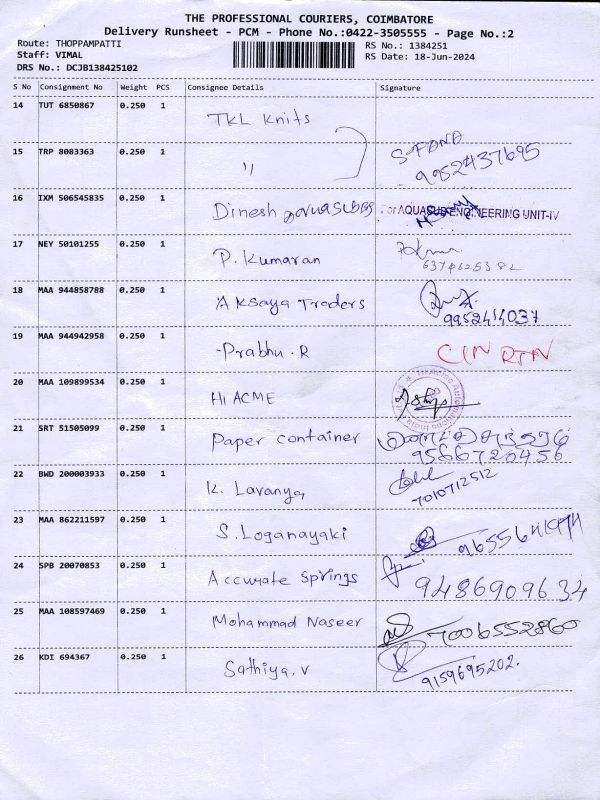 THE PROFESSIONAL COURIERS, COIMBATORE
Delivery Runsheet - PCM - Phone No.:0422-3505555 - Page No.:2
Route: THOPPAMPATTI RS No.: 1384251
Staff: VIMAL RS Date: 18-Jun-2024
DRS No.: DCJB138425102
S No Consignment No Weight PCS Consignee Details Signature
14 TUT 6850867 0.250 1 TKL Knits
15 TRP 8083363 0.250 1 "
9952437695
16 IXM 506545835 0.250 1 Dinesh For AQUASUB ENGINEERING UNIT-IV
17 NEY 50101255 0.250 1 P. Kumaran
18 MAA 944858788 0.250 1 Aksaya Traders
9952414037
19 MAA 944942958 0.250 1 Prabhu.R CIN RTN
20 MAA 109899534 0.250 1 HI ACME
21 SRT 51505099 0.250 1 Paper container
9566720456
22 BWD 200003933 0.250 1 K. Lavanya
7010712512
23 MAA 862211597 0.250 1 S. Loganayaki 9655641974
24 SPB 20070853 0.250 1 Accurate Springs 9486909634
25 MAA 108597469 0.250 1 Mohammad Naseer 7006552860
26 KDI 694367 0.250 1 Sathiya.V
9159695202.